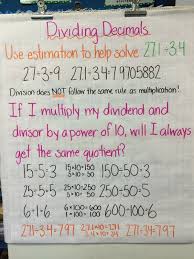 Dividing Decimals
Use estimation to help solve 27.1÷3.4
27÷3=9 27.1÷3.4=7.9705882
Division does NOT follow the same rule as multiplication!
If I multiply my dividend and
divisor by a power of 10, will I always
get the same quotient?
15÷5=3 15×10=150 5×10=50 150÷50=3
25÷5=5 25×10=250 5×10=50 250÷50=5
6÷1=6 6×100=600 1×100=100 600÷100=6
27.1÷3.4=7.97 27.1×10=271 3.4×10=34 271÷34=7.97